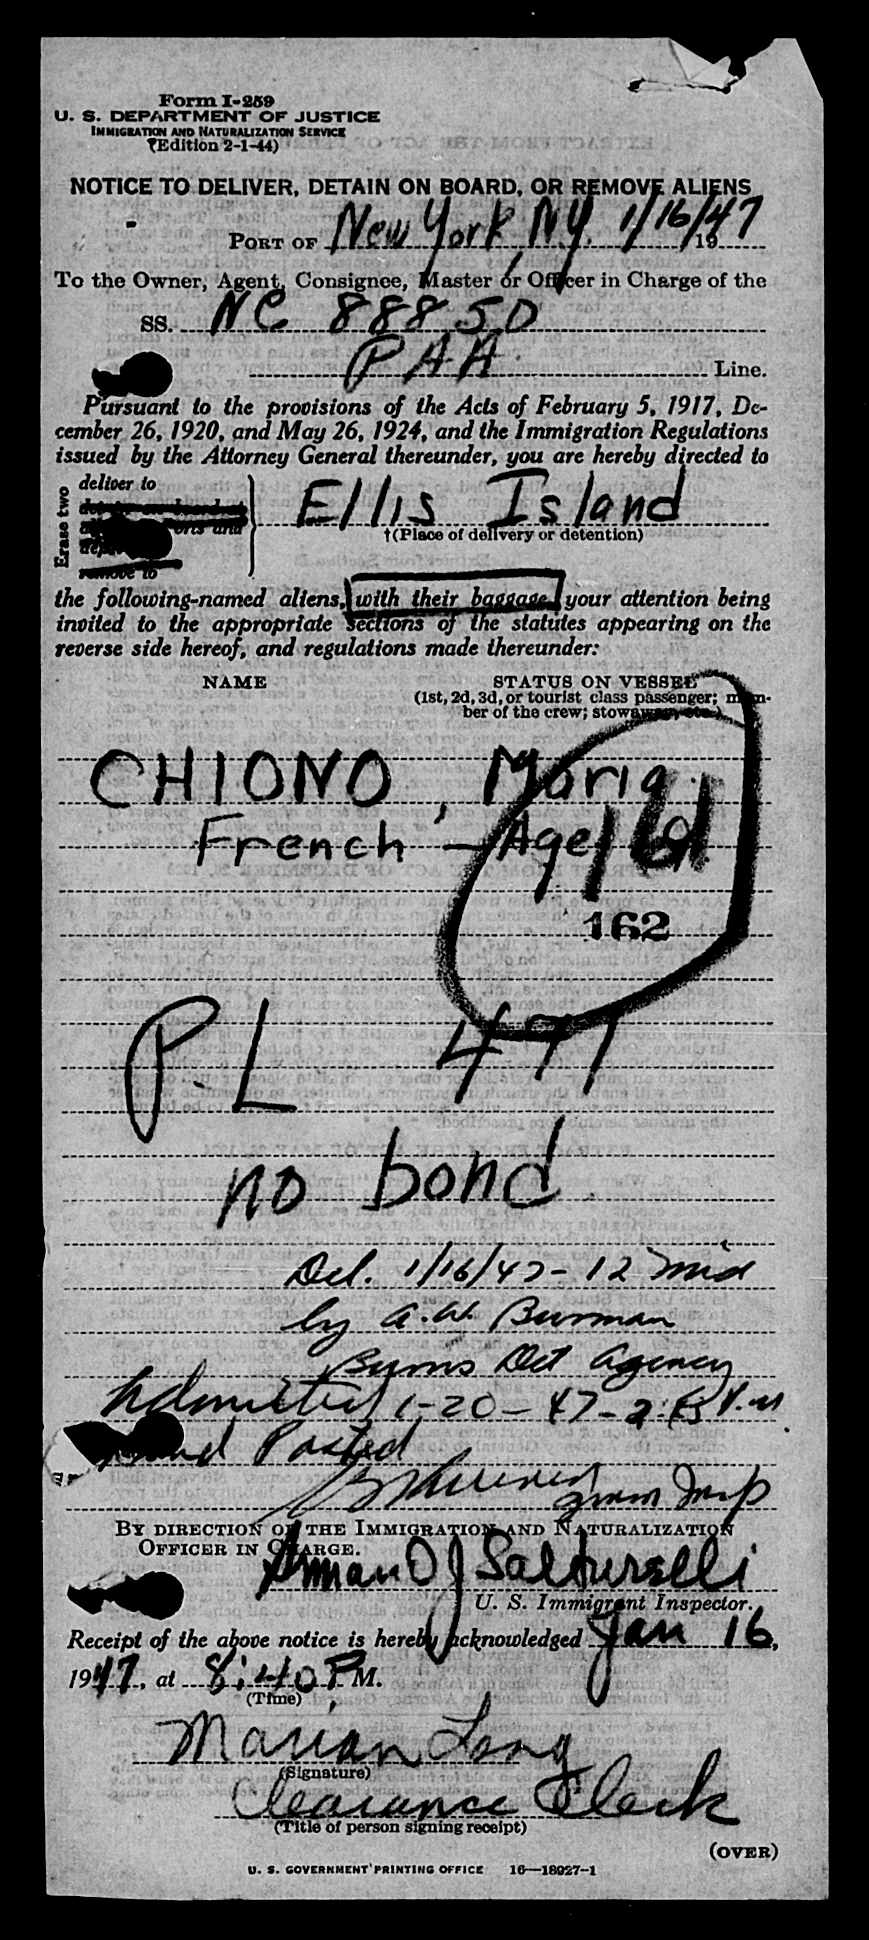 Form I-259
U. S. DEPARTMENT OF JUSTICE
IMMIGRATION AND NATURALIZATION SERVICE
(Edition 2-1-44)
NOTICE TO DELIVER, DETAIN ON BOARD, OR REMOVE ALIENS
PORT OF New York, NY. 1/16/47 19
To the Owner, Agent, Consignee, Master or Officer in Charge of the
SS. NC 88850
PAA Line.
Pursuant to the provisions of the Acts of February 5, 1917, De-
cember 26, 1920, and May 26, 1924, and the Immigration Regulations
issued by the Attorney General thereunder, you are hereby directed to
Erase two
deliver to
remove to
Ellis Island
†(Place of delivery or detention)
the following-named aliens, with their baggage, your attention being
invited to the appropriate sections of the statutes appearing on the
reverse side hereof, and regulations made thereunder:
NAME
STATUS ON VESSEL
(1st, 2d, 3d, or tourist class passenger; mem-
ber of the crew; stowaway, etc.)
CHIONO, Maria
French - Age
162
P.L 471
no bond
Del. 1/16/47 - 12 Mid
by A.W. Burman
Burns Det Agency
Admitted 1-20-47-2
Posted
Imm Insp
BY DIRECTION OF THE IMMIGRATION AND NATURALIZATION
OFFICER IN CHARGE.
Armand J Salturelli
U. S. Immigrant Inspector.
Receipt of the above notice is hereby acknowledged Jan 16,
1947, at 8:40 P M.
(Time)
Marian Long
(Signature)
Clearance Clerk
(Title of person signing receipt)
(OVER)
U. S. GOVERNMENT PRINTING OFFICE 16—18927-1